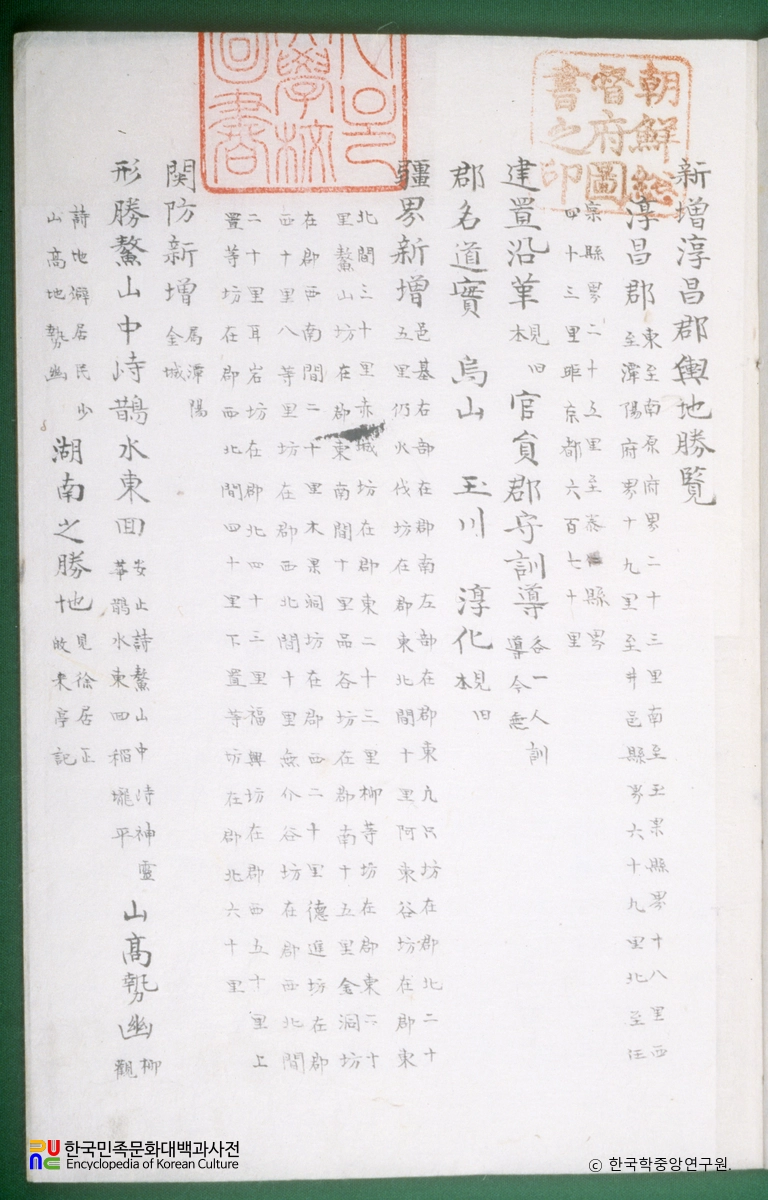 新增淳昌郡輿地勝覽
淳昌郡
東至南原府界二十三里南至玉果縣界十八里西
至潭陽府界十九里至井邑縣界六十九里北至任
縣界二十五里至泰縣界
四十三里距京都六百七十里
建置沿革
見旧
本
官員郡守訓導
各一人訓
導今無
郡名道實 烏山 玉川 淳化
見旧
本
疆界新增
邑基右部在郡南左部在郡東九只坊在郡北二十
五里仍火伐坊在郡東北間十里阿東谷坊在郡東
北間三十里赤城坊在郡東二十三里柳等坊在郡東六十
里鰲山坊在郡東南間十里品谷坊在郡南十五里金洞坊
在郡西南間二十里木果洞坊在郡西二十里德進坊在郡
西十里八等里坊在郡西北間十里無仒谷坊在郡西北間
二十里耳岩坊在郡北四十三里福興坊在郡西五十里上
置等坊在郡西北間四十里下置等坊在郡北六十里
関防新增
属潭陽
金城
形勝鰲山中峙鵲水東回
安止詩鰲山中峙神靈
鵲水東回稻壠平
山高勢幽
柳
觀
詩地僻居民少
山高地勢幽
湖南之勝地
見徐居正
歸來亭記
朝鮮総
督府圖
書之印
學校
圖書
한국민족문화대백과사전
Encyclopedia of Korean Culture
© 한국학중앙연구원.